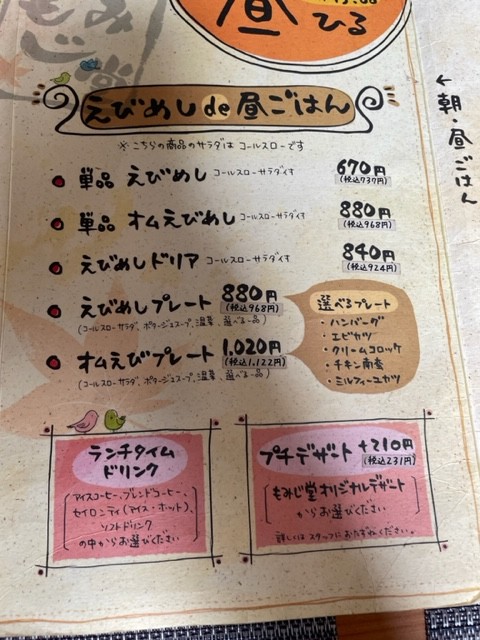 もみじ堂
昼 ひる
← 朝・昼ごはん
えびめし de 昼ごはん
※こちらの商品のサラダは コールスローです
単品 えびめし コールスローサラダ付 670円
(税込737円)
単品 オムえびめし コールスローサラダ付 880円
(税込968円)
えびめしドリア コールスローサラダ付 840円
(税込924円)
えびめしプレート 880円
(税込968円)
(コールスローサラダ、ポタージュスープ、温菜、選べる一品)
オムえびプレート 1,020円
(税込1,122円)
(コールスローサラダ、ポタージュスープ、温菜、選べる一品)
選べるプレート
・ハンバーグ
・エビカツ
・クリームコロッケ
・チキン南蛮
・ミルフィーユカツ
ランチタイム
ドリンク
アイスコーヒー、ブレンドコーヒー、
セイロンティ(アイス・ホット)、
ソフトドリンク
の中からお選びください
プチデザート +210円
(税込231円)
もみじ堂オリジナルデザート
からお選びください
詳しくは スタッフにおたずねください。